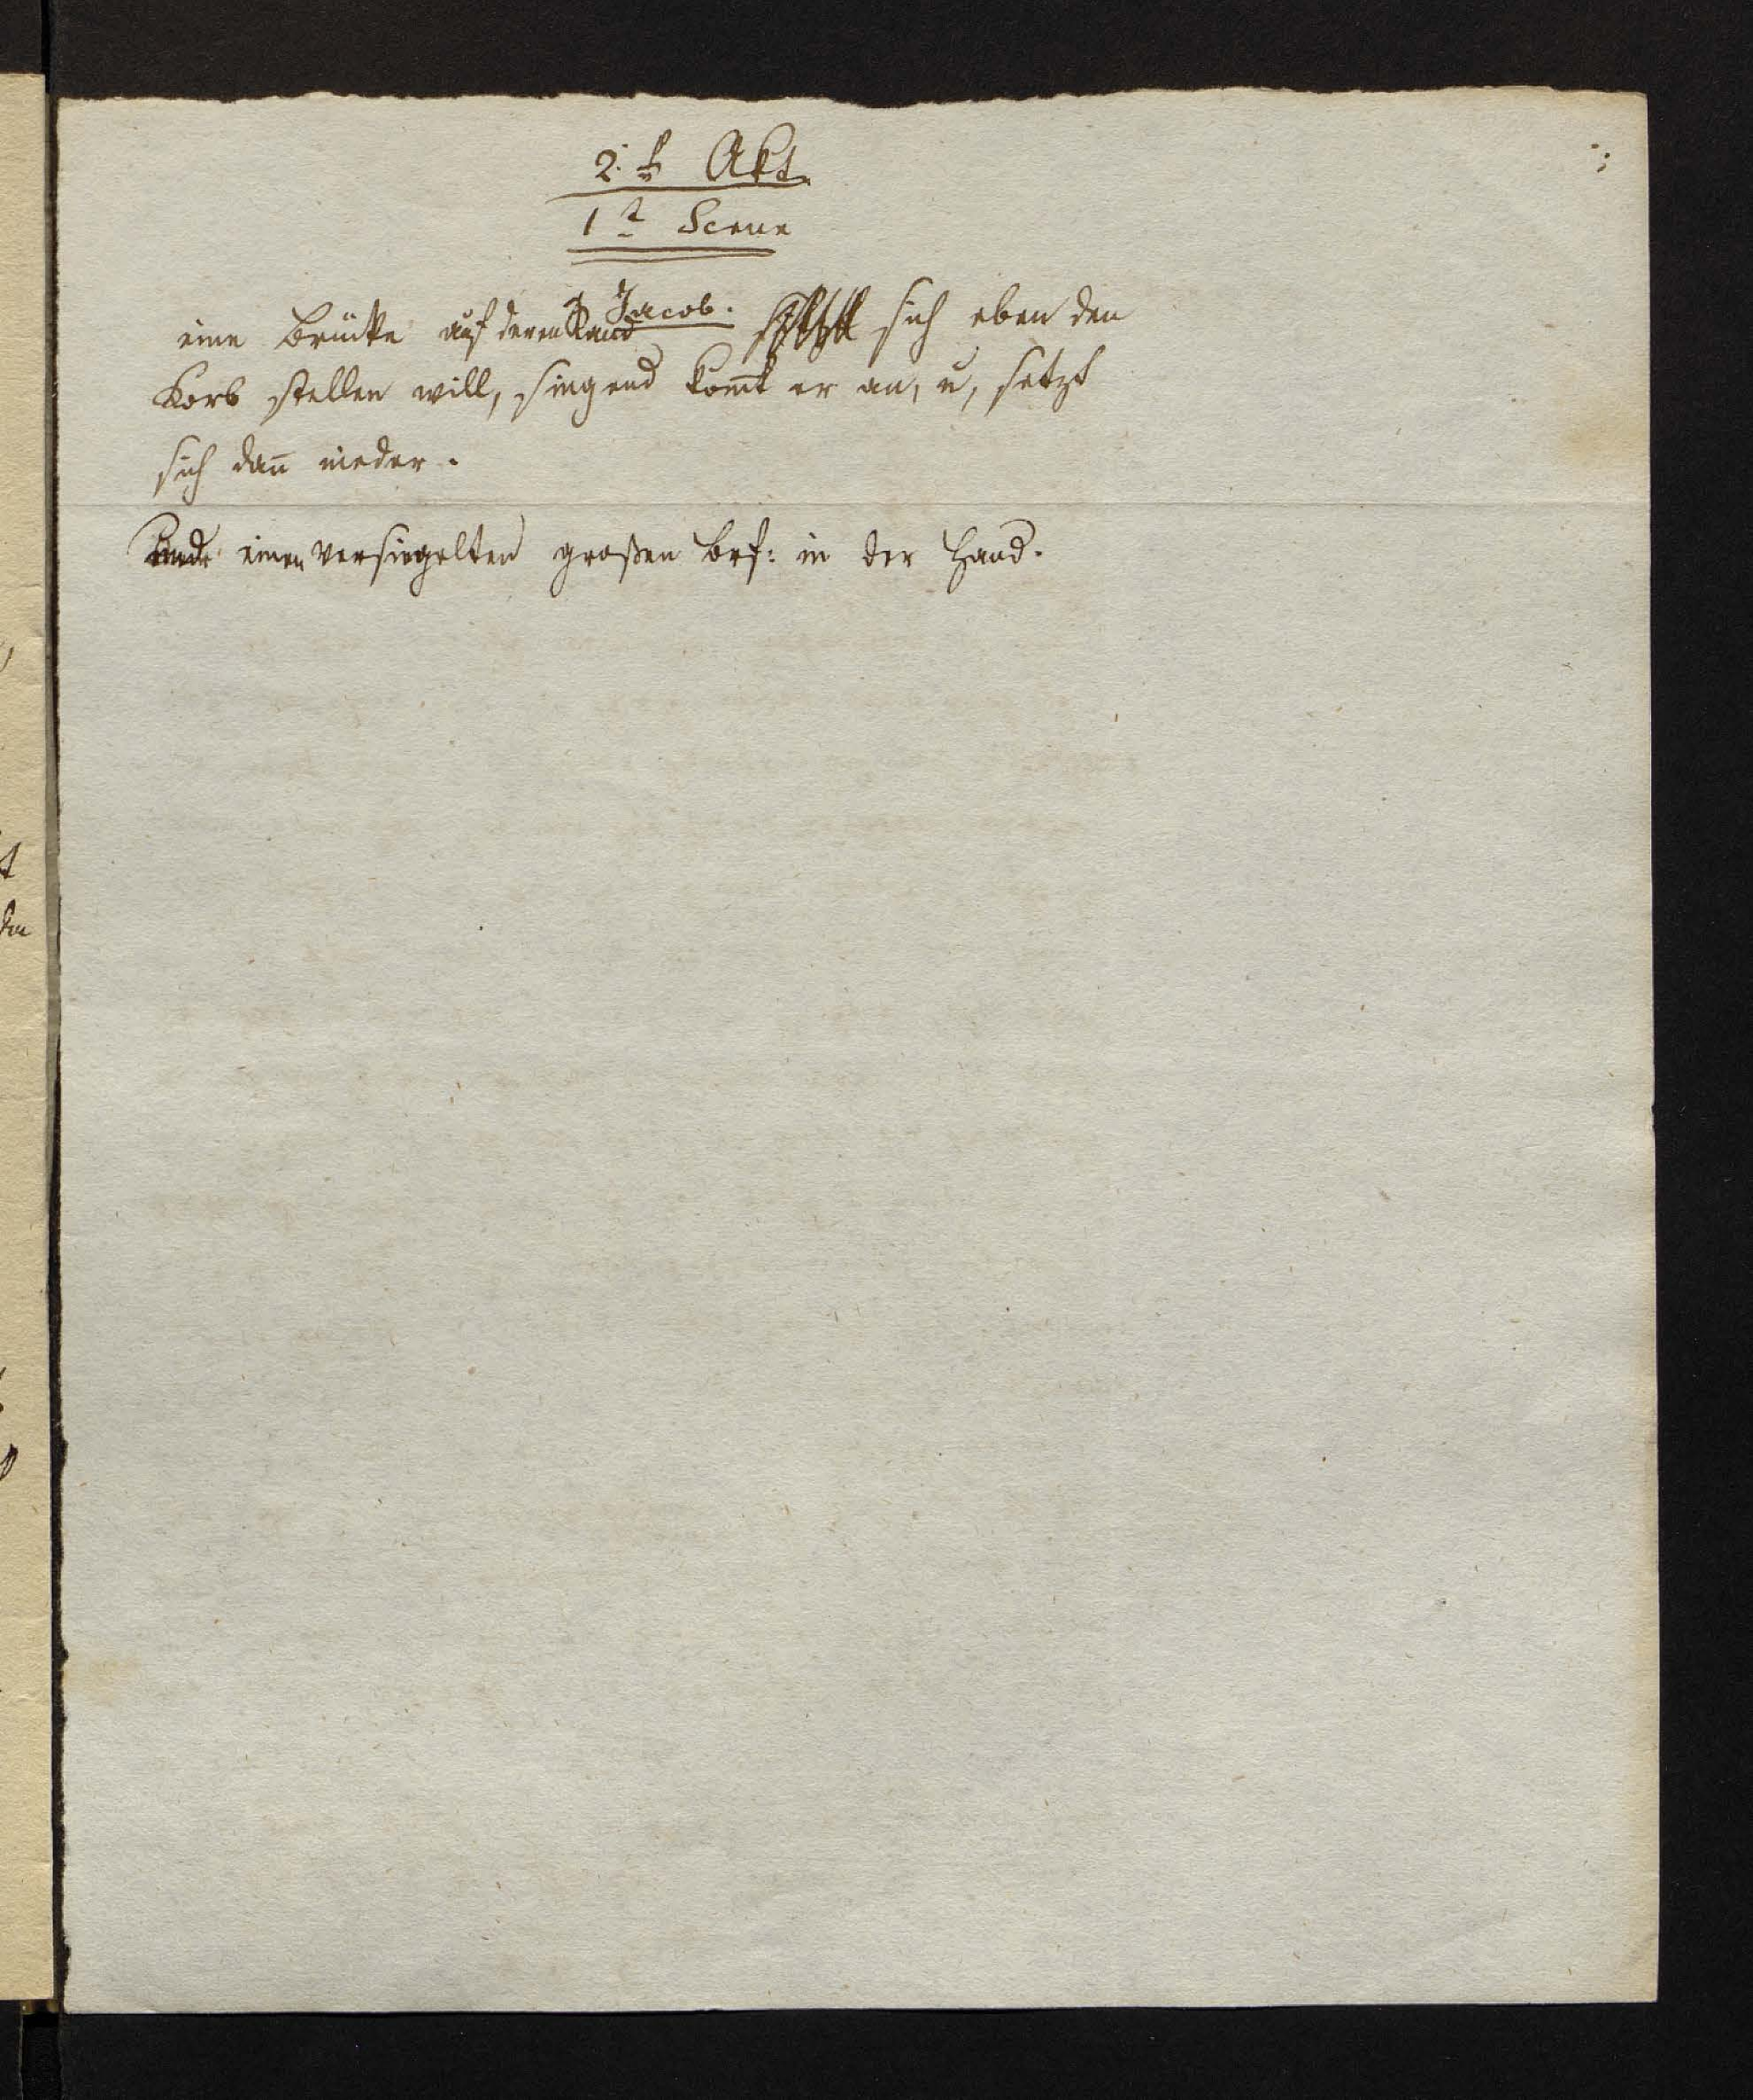 2.ter Akt.
1te Scene
Jacob.
eine Brücke auf deren Rand sich eben den
Korb stellen will, singend kom̄t er an, u, setzt
sich dan̄ nieder.
einen versiegelten großen brf: in der Hand.